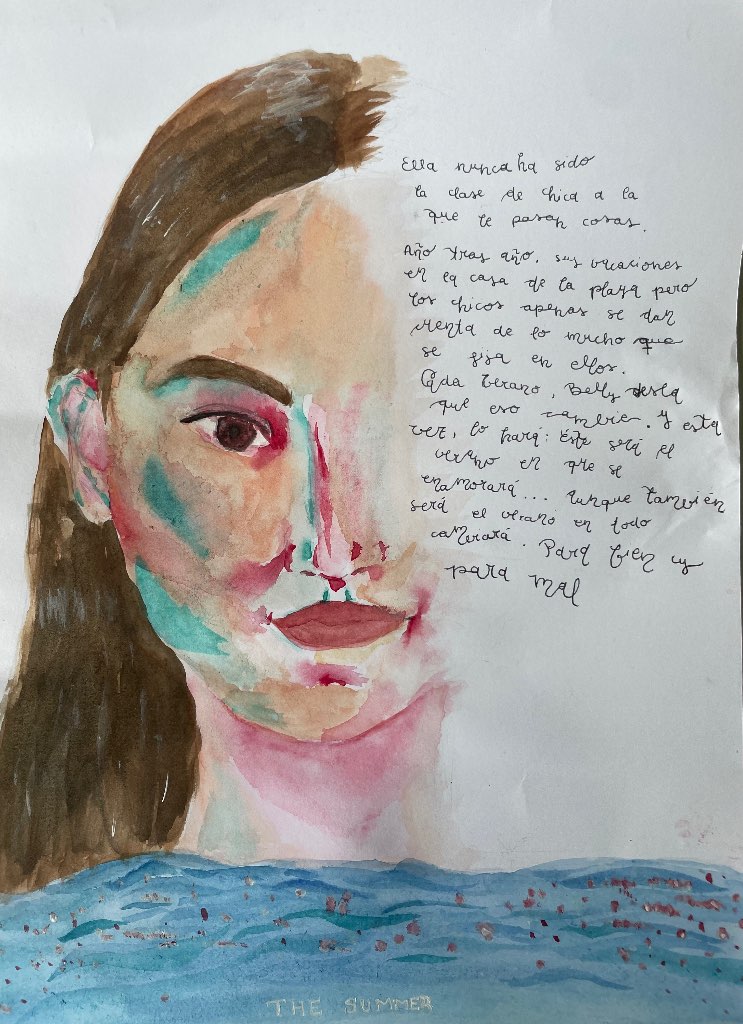 Ella nunca ha sido
la clase de chica a la
que le pasan cosas.
Año tras año, sus vacaciones
en la casa de la playa pero
los chicos apenas se dan
cuenta de lo mucho que
se fija en ellos.
Cada verano, Belly desea
que eso cambie. Y esta
vez, lo hará: Éste será el
verano en que se
enamorará... aunque también
será el verano en todo
cambiará. Para bien y
para mal
THE SUMMER